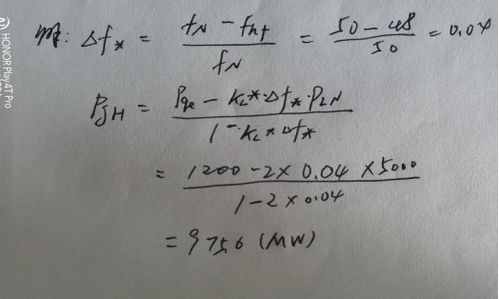 解: Δf* = (fN - fht) / fN = (50 - 48) / 50 = 0.04
PJH = (Pqe - KL*·Δf*·PLN) / (1 - KL*Δf*)
= (1200 - 2 × 0.04 × 5000) / (1 - 2 × 0.04)
= 975.6 (MW)
HONOR Play4T Pro